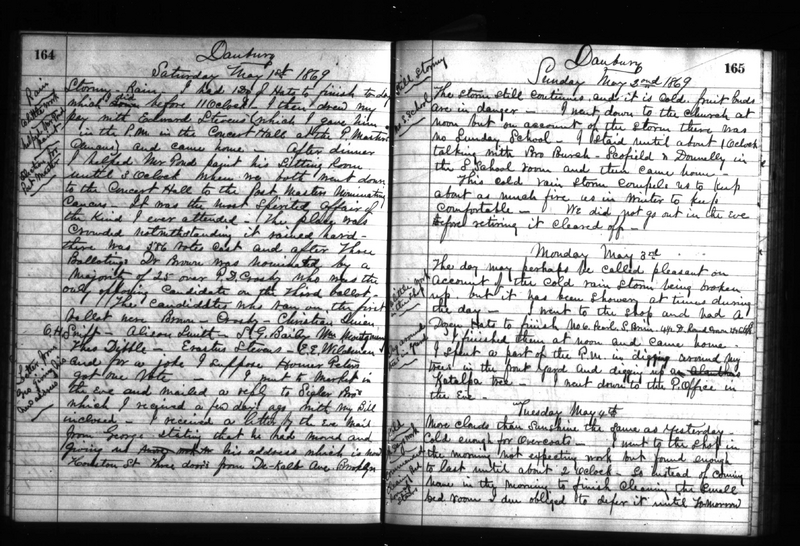 164
Danbury
Saturday May 1st 1869
Stormy - Rain - I had 1 Dz Hats to finish to day
which I did before 11 Oclock - I then drew my
pay with Edward Stevens (which I gave him
in the P.M. in the Concert Hall at the P. Masters
Caucus) and came home - After dinner
I helped Mr Pond paint his Sitting Room
until 3 Oclock when we both went down
to the Concert Hall to the Post Masters Nominating
Caucus - It was the most spirited affair of
the kind I ever attended - The place was
Crowded notwithstanding it rained hard -
there was 386 votes cast and after three
Ballotings Dr Brown was Nominated by a
Majority of 25 over P.D. Crosby who was the
only opposing Candidate on the third ballot -
The Candidates who ran on the first
ballot were Brown - Crosby - Christian Quien
G H Swift - Alison Smith - S. G. Bailey Wm Montgomery
Theo Tibble - Erastus Stevens - E. E. Wildman
and for a joke I suppose Homer Peters
got one Vote - went to Market in
the Eve and mailed a reply to Sigler Bros
which I received a few days ago with my Bill
inclosed - I received a letter by the Eve Mail
from George stating that he had moved and
Giving us his address which is now
Houston St three doors from De Kalb Ave Brooklyn
Rain
Post Master
Letter from
Geo giving his
new address
165
Danbury
Sunday May 2nd 1869
Still Stormy
No S School
The Storm still continues and it is cold. fruit buds
are in danger - I went down to the Church at
noon but on account of the Storm there was
no Sunday School - I staid until about 1 Oclock
talking with Bro Burch - Scofield & Donnelly in
the S School room and then came home -
This cold rain storm compels us to keep
about as much fire as in Winter to keep
Comfortable - We did not go out in the Eve
before retiring it cleared off -
Monday May 3rd
The day may perhaps be called pleasant on
account of the cold rain storm being broken
up but it has been showery at times during
the day - I went to the shop and had a
Dozen Hats to finish No 6. Pearl S. Brim
I finished them at noon and came home
I spent a part of the P.M. in digging around my
trees in the front yard and digging up a
Katalpa tree - I went down to the P. Office in
the Eve -
Tuesday May 4th
More clouds than Sunshine the same as yesterday
Cold enough for Overcoats - I went to the shop in
the morning not expecting work but found enough
to last until about 2 Oclock So instead of Coming
home in the morning to finish cleaning the small
bed room I was obliged to defer it until Tomorrow